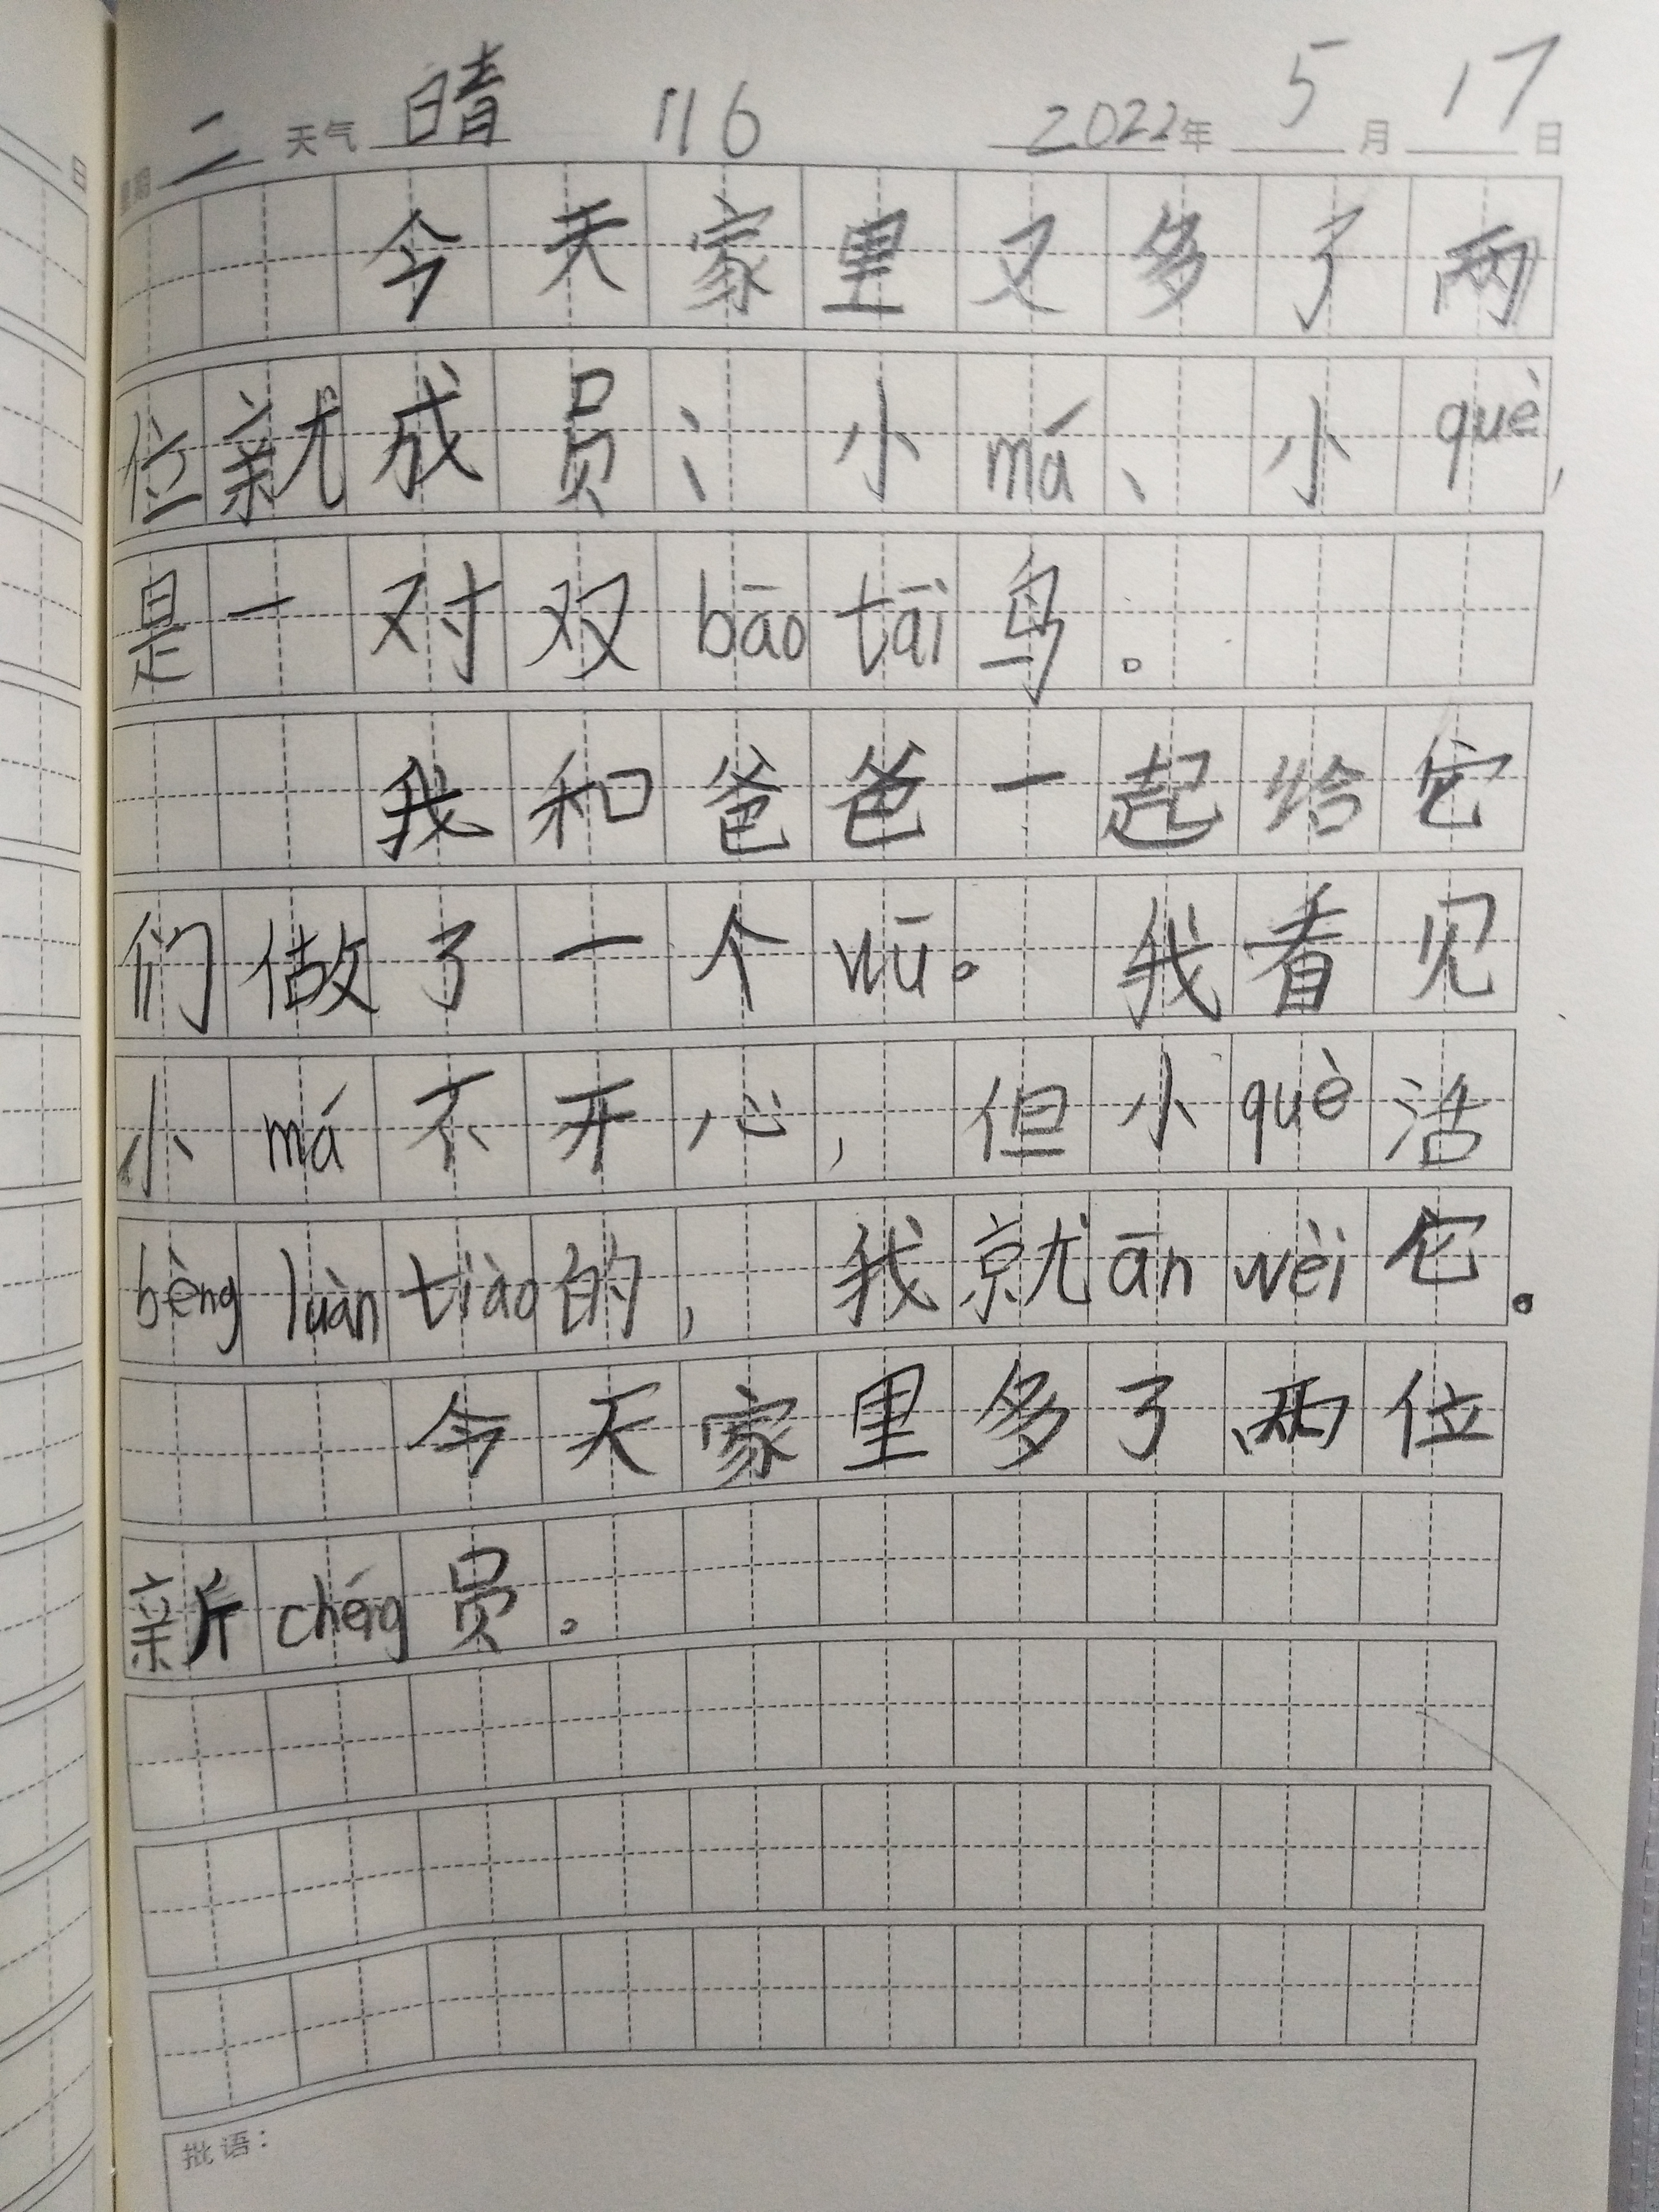 星期 二 天气 晴 116 2022年 5月 17日
今天家里又多了两
位新成员：小má、小què，
是一对双bāo tāi鸟。
我和爸爸一起给它
们做了一个wū。我看见
小má不开心，但小què活
bèng luàn tiào的，我就ān wèi它。
今天家里多了两位
新chéng员。
批语：
日